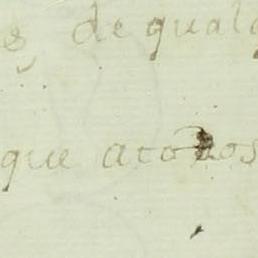 s, de qualq
que atodos